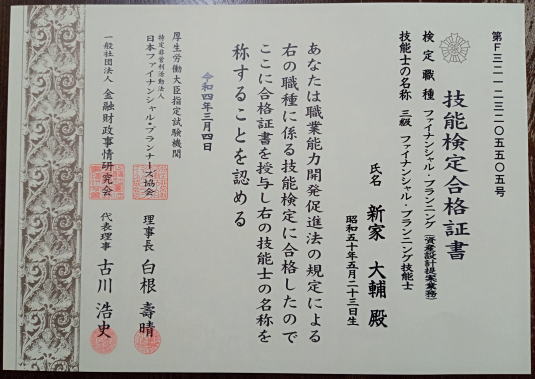 第F三二一二三二〇五五〇五号
技能検定合格証書
検定職種 ファイナンシャル・プランニング(資産設計提案業務)
技能士の名称 三級 ファイナンシャル・プランニング技能士
氏名 新家 大輔 殿
昭和五十年五月二十三日生
あなたは職業能力開発促進法の規定による
右の職種に係る技能検定に合格したので
ここに合格証書を授与し右の技能士の名称を
称することを認める
令和四年三月四日
厚生労働大臣指定試験機関
特定非営利活動法人
日本ファイナンシャル・プランナーズ協会 理事長 白根 壽晴
一般社団法人 金融財政事情研究会 代表理事 古川 浩史